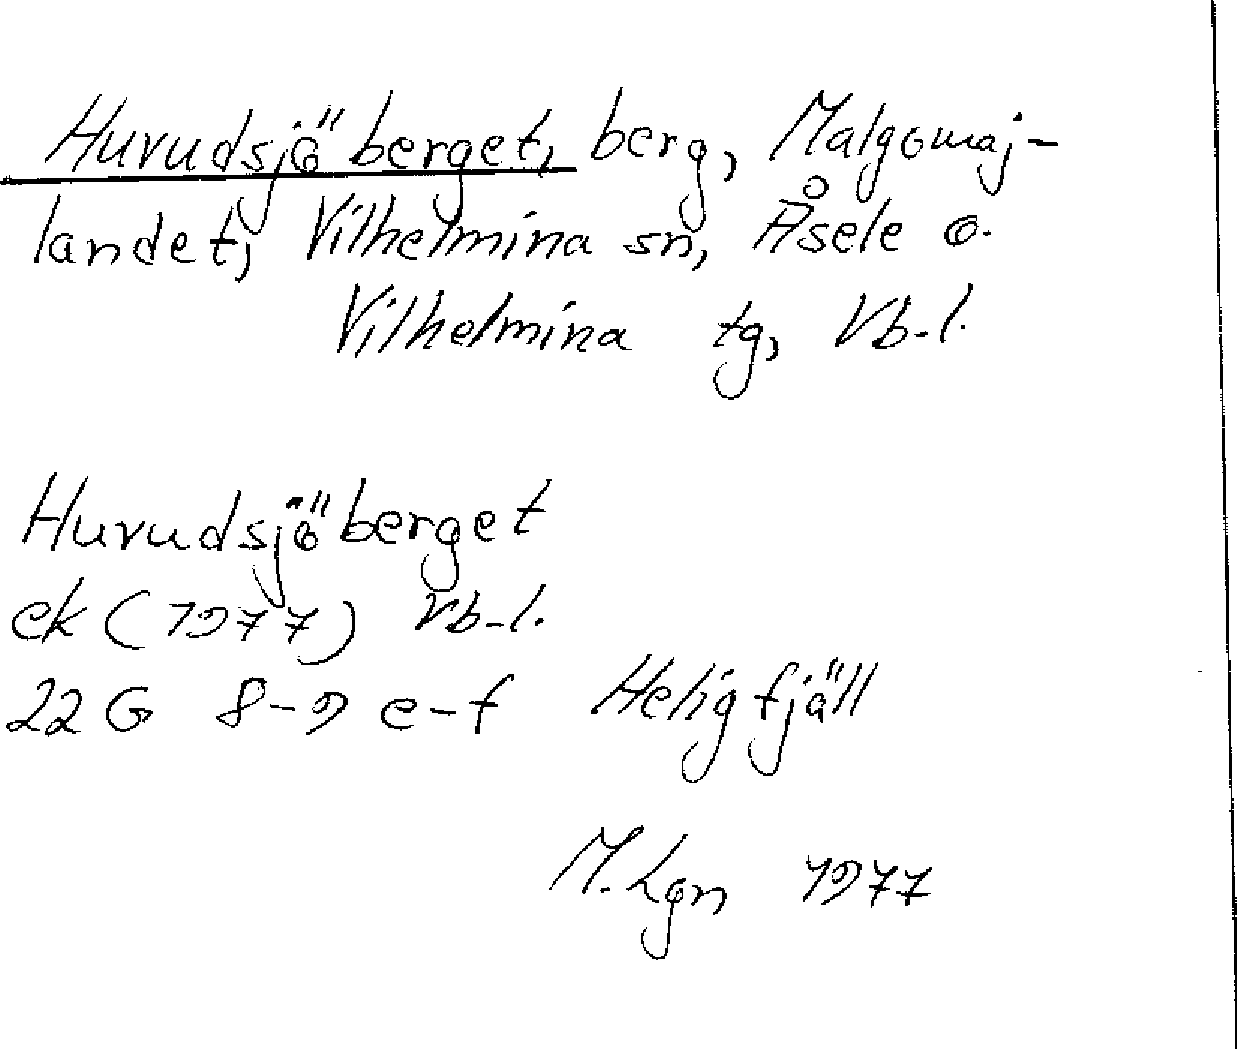 Huvudsjöberget, berg, Malgomaj-
landet, Vilhelmina sn, Åsele o.
Vilhelmina tg, Vb.l.
Huvudsjöberget
ek (1977) Vb-l.
22 G 8-9 e-f Heligfjäll
M. Lgn 1977